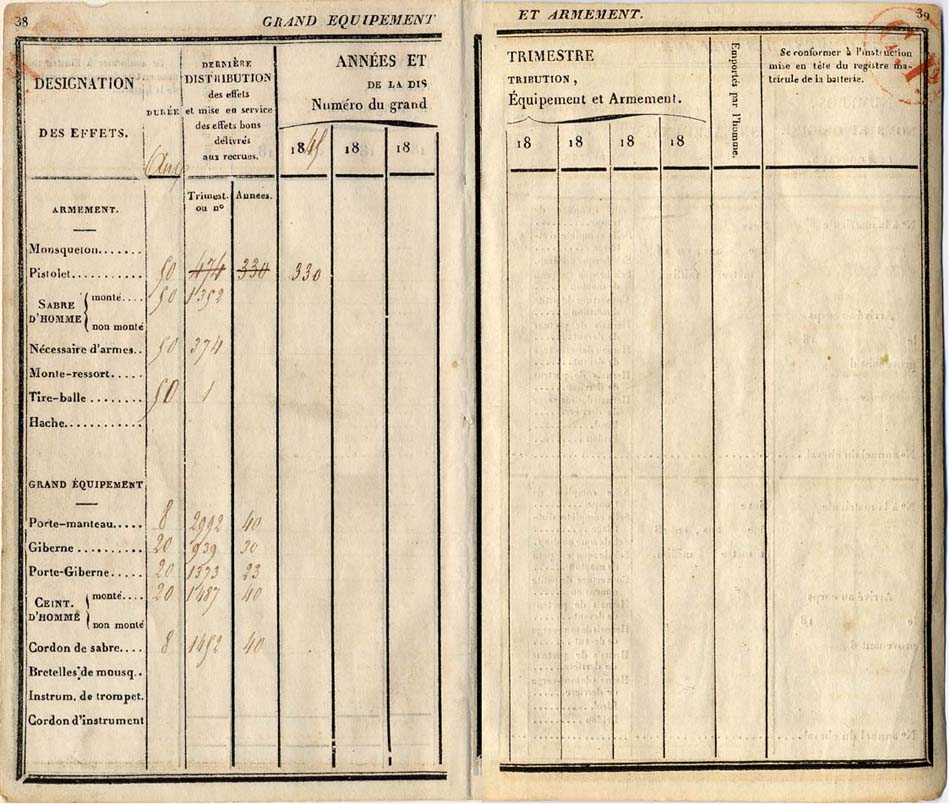 38 GRAND EQUIPEMENT
DESIGNATION
DES EFFETS.
DURÉE
Ans
DERNIÈRE
DISTRIBUTION
des effets
et mise en service
des effets bons
délivrés
aux recrues.
ANNÉES ET
DE LA DIS
Numéro du grand
1845 18 18
Trimest. Années.
ou nº
ARMEMENT.
Mousqueton......
Pistolet.......... 50 474 330 330
SABRE D'HOMME monté.... 50 1352
non monté
Nécessaire d'armes.. 50 374
Monte-ressort.....
Tire-balle ........ 50 1
Hache............
GRAND ÉQUIPEMENT
Porte-manteau..... 8 2992 40
Giberne .......... 20 939 30
Porte-Giberne..... 20 1373 23
CEINT. D'HOMME monté.... 20 1487 40
non monté
Cordon de sabre.... 8 1452 40
Bretelles de mousq..
Instrum. de trompet.
Cordon d'instrument
ET ARMEMENT. 39
TRIMESTRE
TRIBUTION,
Équipement et Armement.
18 18 18 18
Emportés par l'homme.
Se conformer à l'instruction
mise en tête du registre ma-
tricule de la batterie.